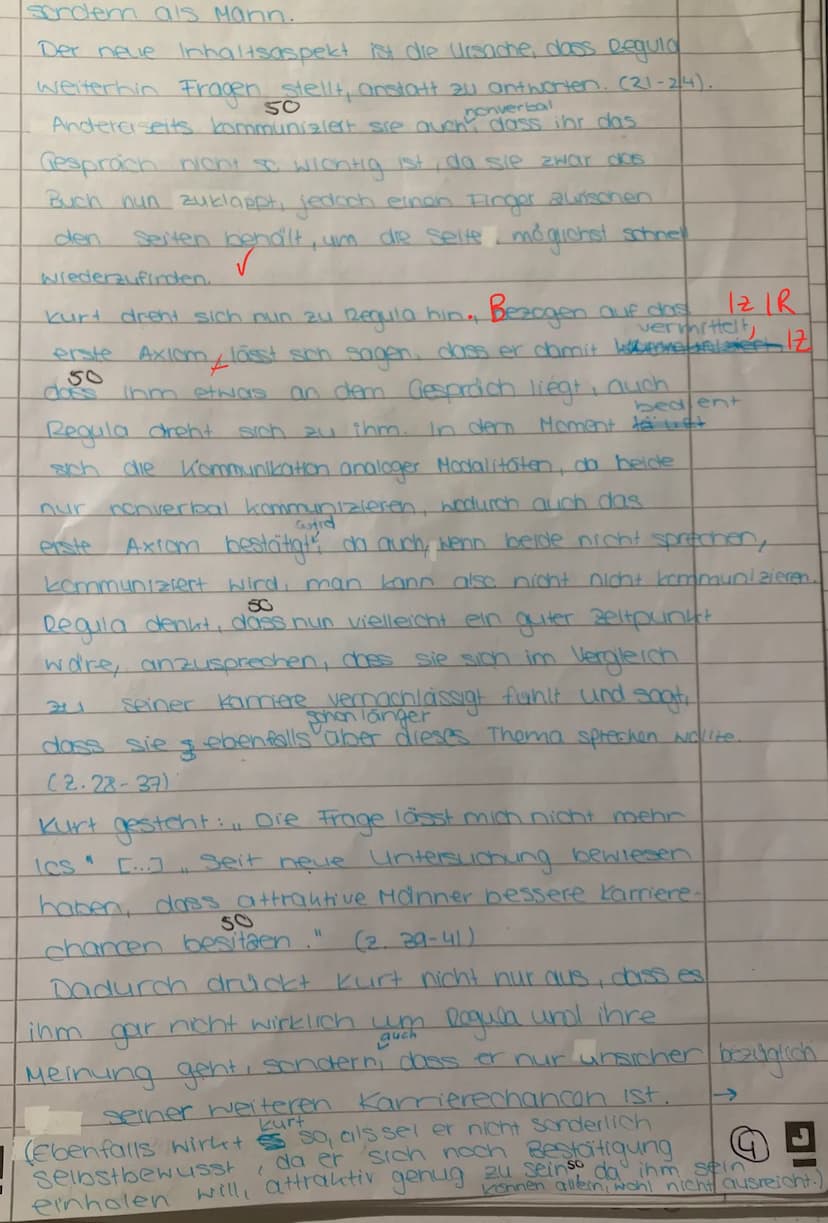 sondern als Mann.
Der neue Inhaltsaspekt ist die Ursache, dass Regula
weiterhin Fragen stellt, anstatt zu antworten. (21-24).
50 nonverbal
Andererseits kommuniziert sie auch, dass ihr das
Gespräch nicht so wichtig ist, da sie zwar das
Buch nun zuklappt, jedoch einen Finger zwischen
den Seiten behält, um die Seite möglichst schnell
wiederzufinden. ✓
Kurt dreht sich nun zu Regula hin. Bezogen auf das |Z |R
vermittelt,
erste Axiom, lässt sich sagen, dass er damit |Z
50
dass ihm etwas an dem Gespräch liegt, auch
bedient
Regula dreht sich zu ihm. In dem Moment
sich die Kommunikation analoger Modalitäten, da beide
nur nonverbal kommunizieren, wodurch auch das
wird
erste Axiom bestätigt, da auch, wenn beide nicht sprechen,
kommuniziert wird, man kann also nicht nicht kommunizieren.
50
Regula denkt, dass nun vielleicht ein guter Zeitpunkt
wäre, anzusprechen, dass sie sich im Vergleich
zu seiner Karriere vernachlässigt fühlt und sagt,
schon länger
dass sie ebenfalls über dieses Thema sprechen wollte.
(Z. 28-37)
Kurt gesteht: „Die Frage lässt mich nicht mehr
los" [...] „Seit neue Untersuchung bewiesen
haben, dass attraktive Männer bessere Karriere-
50
chancen besitzen." (Z. 39-41)
Dadurch drückt Kurt nicht nur aus, dass es
ihm gar nicht wirklich um Regula und ihre
auch
Meinung geht, sondern, dass er nur unsicher bezüglich
seiner weiteren Karrierechancen ist. →
Kurt
(Ebenfalls wirkt so, als sei er nicht sonderlich
selbstbewusst, da er sich noch Bestätigung
einholen will, attraktiv genug zu sein, so da ihm sein
können allein, wohl nicht ausreicht.)
4